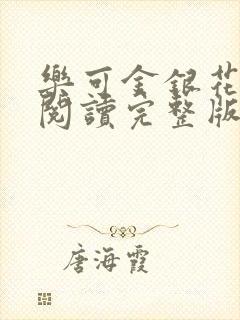 樂可金銀花
閱讀完整版
唐海霞